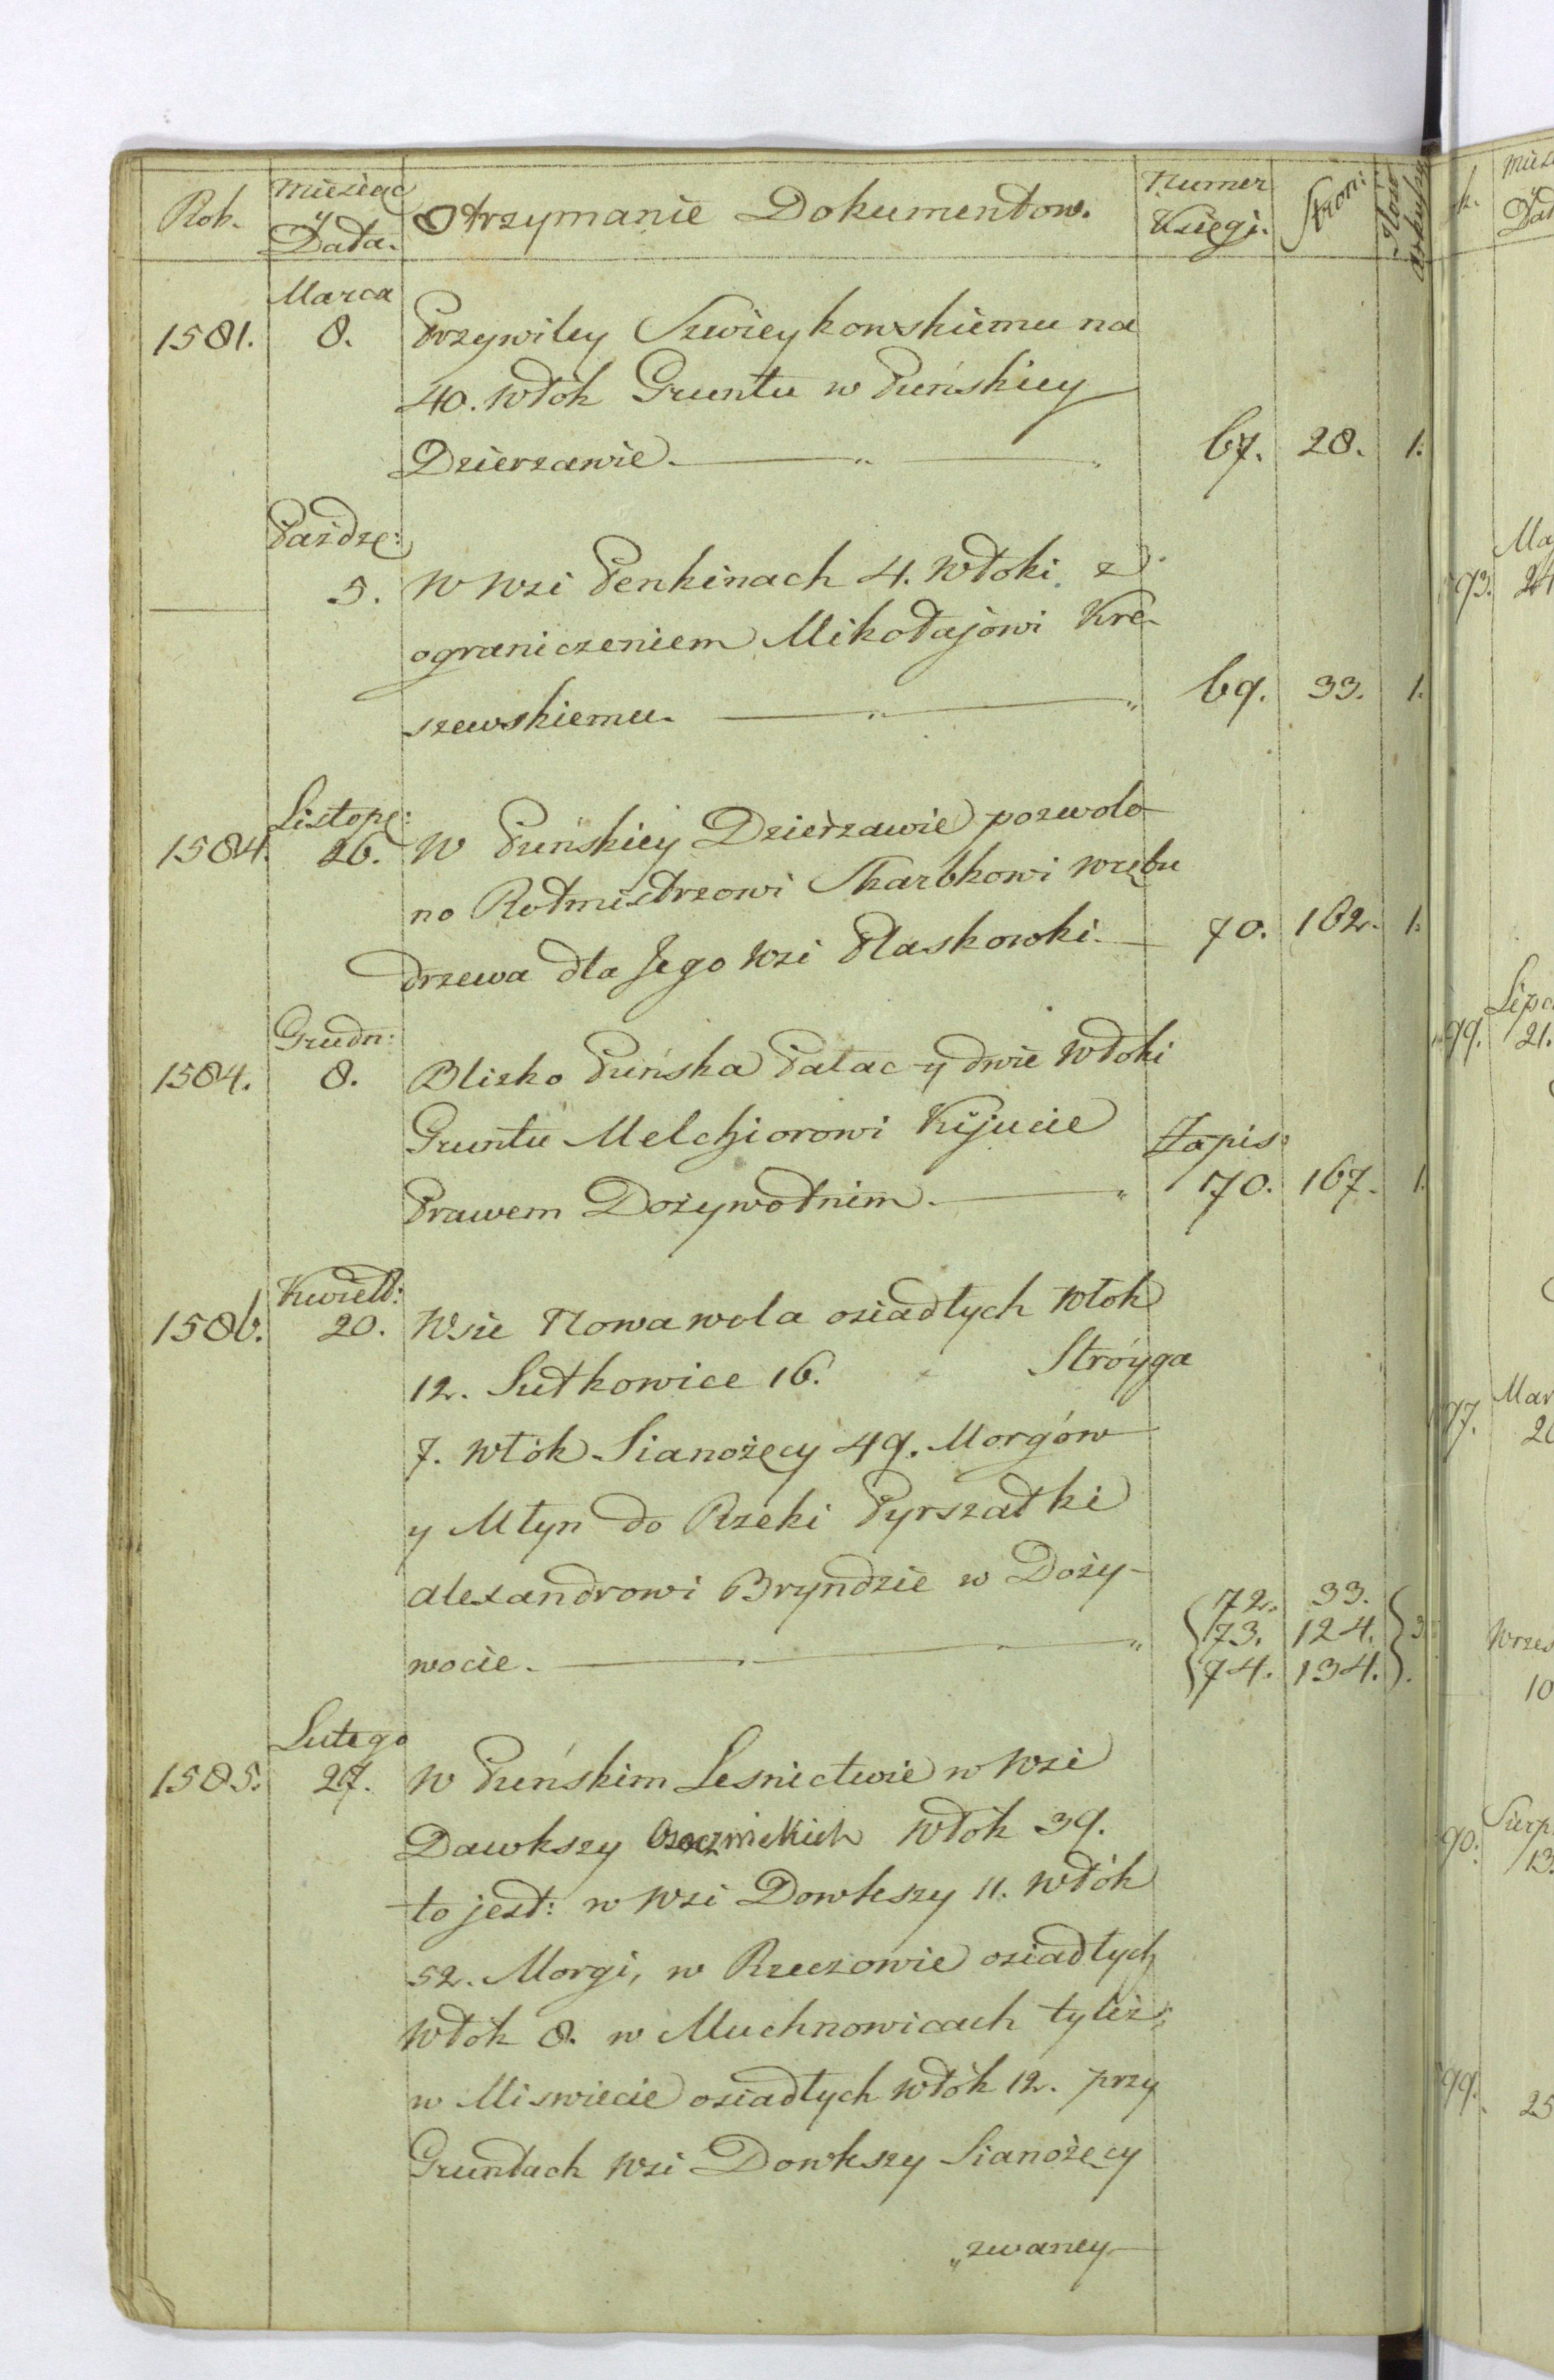 Rok. Miesiąc y Data. Otrzymanie Dokumentow. Numer Księgi. Stron: Ilość arkuszy
Marca
1581. 8. Przywiley Szwieykowskiemu na
40. Włók Gruntu w Puńskiey
Dzierzawie. 67. 28. 1.
Paźdze:
5. W Wsi Penkinach 4. Włoki z
ograniczeniem Mikołajowi Kre-
szewskiemu. 69. 33. 1.
Listope:
1584. 26. W Puńskiey Dzierzawie pozwolo-
no Rotmistrzowi Skarbkowi wrębu
drzewa dla Jego Wsi Plaskowki. 70. 162. 1.
Grudn:
1584. 8. Blisko Puńska Pałac y dwie Włoki
Gruntu Melchiorowi Kijucie Zapis:
Prawem Dożywotnim. 70. 167. 1.
Kwiet:
1586. 20. Wsie Nowawola osiadłych Włok
12. Sutkowice 16. Stróyga
7. Włók Sianożęcy 49. Morgów
y Młyn do Rzeki Pyrszatki
Alexandrowi Bryndzie w Doży- 72. 33.
wocie. 73. 124. 3
74. 134.
Lutego
1585. 27. W Puńskim Lesnictwie w Wsi
Dawkszy Włók 39.
to jest: w Wsi Dowkszy 11. Włók
52. Morgi, w Rzeczowie osiadłych
Włók 8. w Muchnowicach tyleż;
w Miswiecie osiadłych Włók 12. przy
Gruntach Wsi Dowkszy Sianożęcy
„zwaney